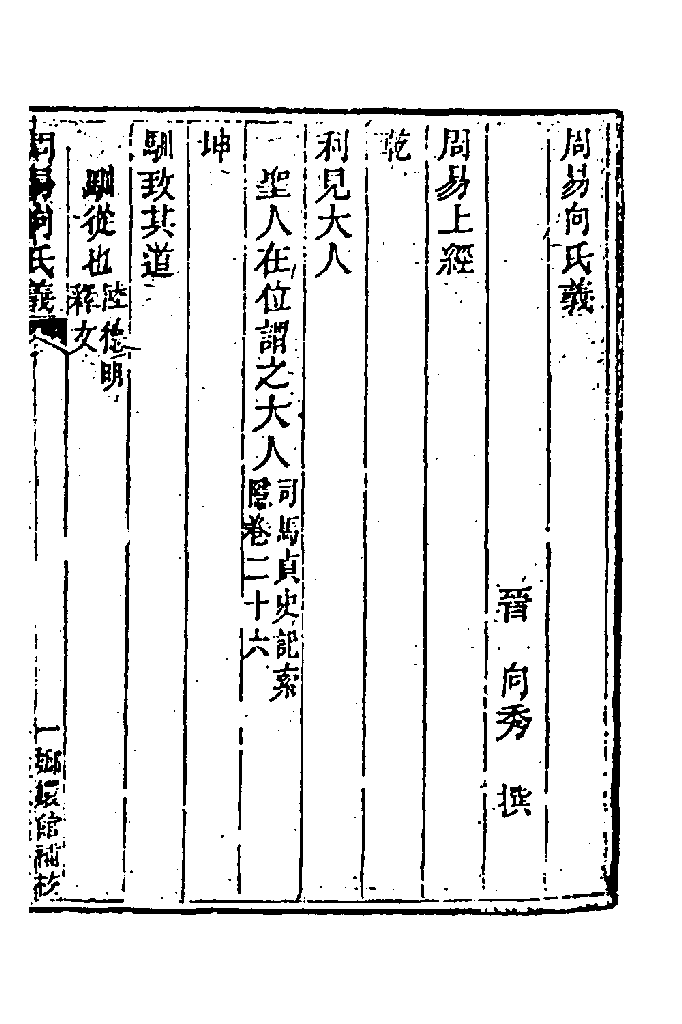 周易向氏義
晉　向秀　撰
周易上經
乾
利見大人
聖人在位謂之大人司馬貞史記索
隱卷二十六
坤
馴致其道
馴從也陸德明
釋文
周易向氏義
一
嫏嬛館補校